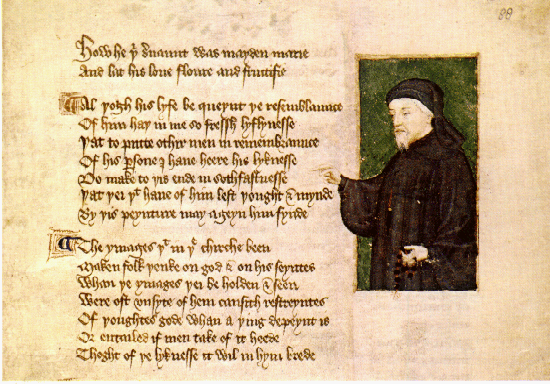 88
How he þͥ s̉uaunt was mayden marie
And lat his loue floure and fructifie
Al þogh his lyfe be queynt þe resemblaunce
Of him haþ in me so fressh lyflynesse
Þat to putte othir men in remembraunce
Of his ꝑsone I haue heere his lyknesse
Do make to þis ende in sothfastnesse
Þat þei þᵗ haue of him left þought & mynde
By þis peynture may ageyn him fynde
The ymages þᵗ in þᵉ chirche been
Maken folk þenke on god & on his seyntes
Whan þe ymages þei be holden & seen
Were oft vnsyte of hem causith restreyntes
Of þoughtes gode whan a þing depeynt is
Or entailed if men take of it heede
Thoght of þe lyknesse it wil in hym brede